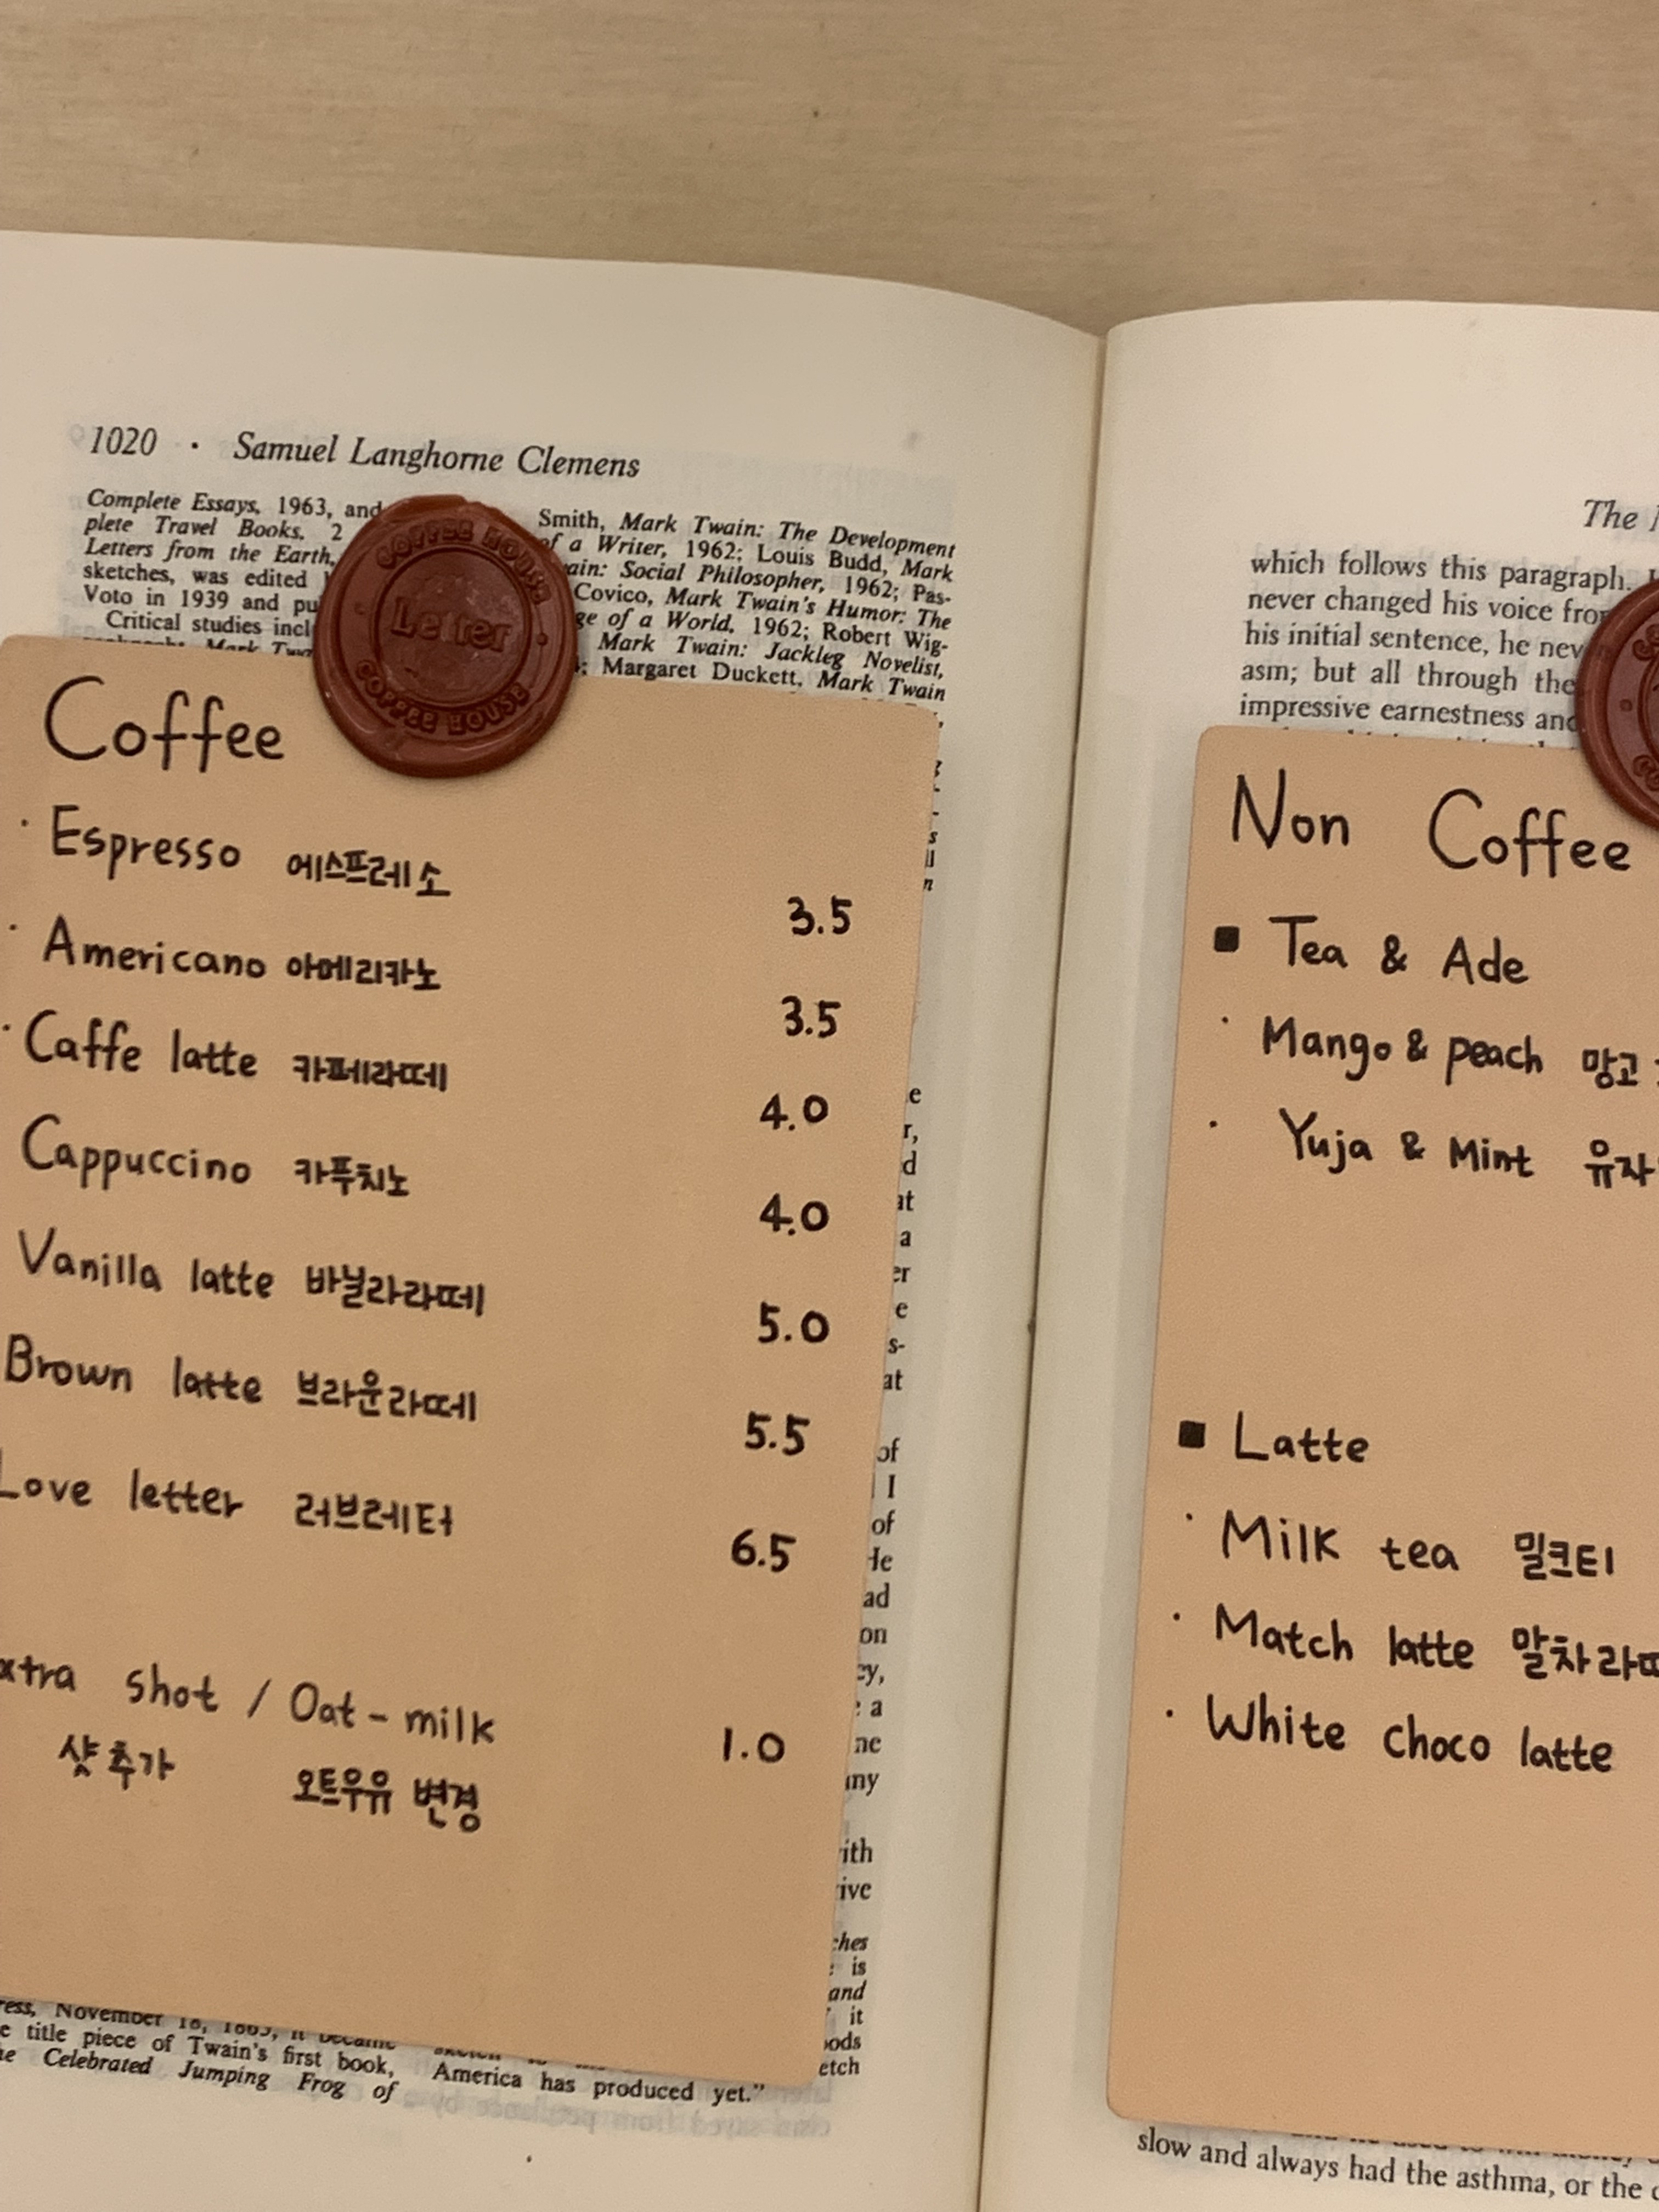 1020 · Samuel Langhorne Clemens
Complete Essays, 1963, and
plete Travel Books, 2
Letters from the Earth,
sketches, was edited
Voto in 1939 and pu
Critical studies incl
Smith, Mark Twain: The Development
of a Writer, 1962; Louis Budd, Mark
ain: Social Philosopher, 1962; Pas-
Covico, Mark Twain's Humor: The
ge of a World, 1962; Robert Wig-
Mark Twain: Jackleg Novelist,
; Margaret Duckett, Mark Twain
COFFEE HOUSE
Letter
COFFEE HOUSE
Coffee
· Espresso 에스프레소 3.5
· Americano 아메리카노 3.5
· Caffe latte 카페라떼 4.0
Cappuccino 카푸치노 4.0
Vanilla latte 바닐라라떼 5.0
Brown latte 브라운라떼 5.5
Love letter 러브레터 6.5
xtra shot / Oat-milk 1.0
샷추가 오트우유 변경
ress, November 18, 1865, it became
e title piece of Twain's first book,
he Celebrated Jumping Frog of
America has produced yet."
The
which follows this paragraph.
never changed his voice from
his initial sentence, he nev
asm; but all through the
impressive earnestness and
Non Coffee
■ Tea & Ade
· Mango & peach 망고
· Yuja & Mint 유자
■ Latte
· Milk tea 밀크티
· Match latte 말차라떼
· White choco latte
slow and always had the asthma, or the